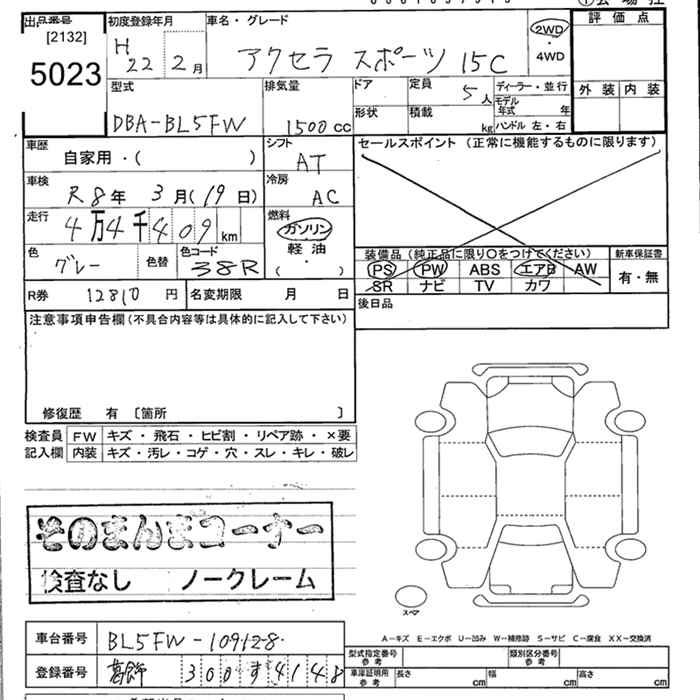 出品番号 初度登録年月 車名・グレード 評価点
[2132]
5023
H 22 2月 アクセラ スポーツ 15C 2WD・4WD
型式 排気量 ドア 定員 5人 ディーラー・並行 外装 内装
DBA-BL5FW 1500cc 形状 積載 kg モデル年式 年
ハンドル 左・右
車歴 シフト セールスポイント (正常に機能するものに限ります)
自家用・( ) AT
車検 R8年 3月(19日) 冷房 AC
走行 4万4千409km 燃料 ガソリン
軽油
・
( )
色 グレー 色替 色コード 38R
装備品 (純正品に限り○をつけてください) 新車保証書
PS PW ABS エアB AW 有・無
SR ナビ TV カワ
R券 12810円 名変期限 月 日 後日品
注意事項申告欄 (不具合内容等は具体的に記入して下さい)
修復歴 有 〔箇所 〕
検査員 FW キズ・飛石・ヒビ割・リペア跡・×要
記入欄 内装 キズ・汚レ・コゲ・穴・スレ・キレ・破レ
そのまんまコーナー
検査なし ノークレーム
スペア
A-キズ E-エクボ U-凹み W-補修跡 S-サビ C-腐食 XX-交換済
車台番号 BL5FW-109128
登録番号 葛飾 300 す 4148
型式指定番号 参考 類別区分番号 参考
車庫証明用 参考 長さ cm 幅 cm 高さ cm